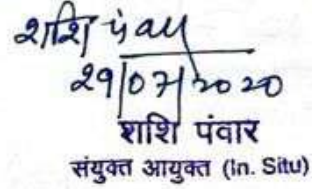 शशि पंवार
29/07/2020
शशि पंवार
संयुक्त आयुक्त (In. Situ)